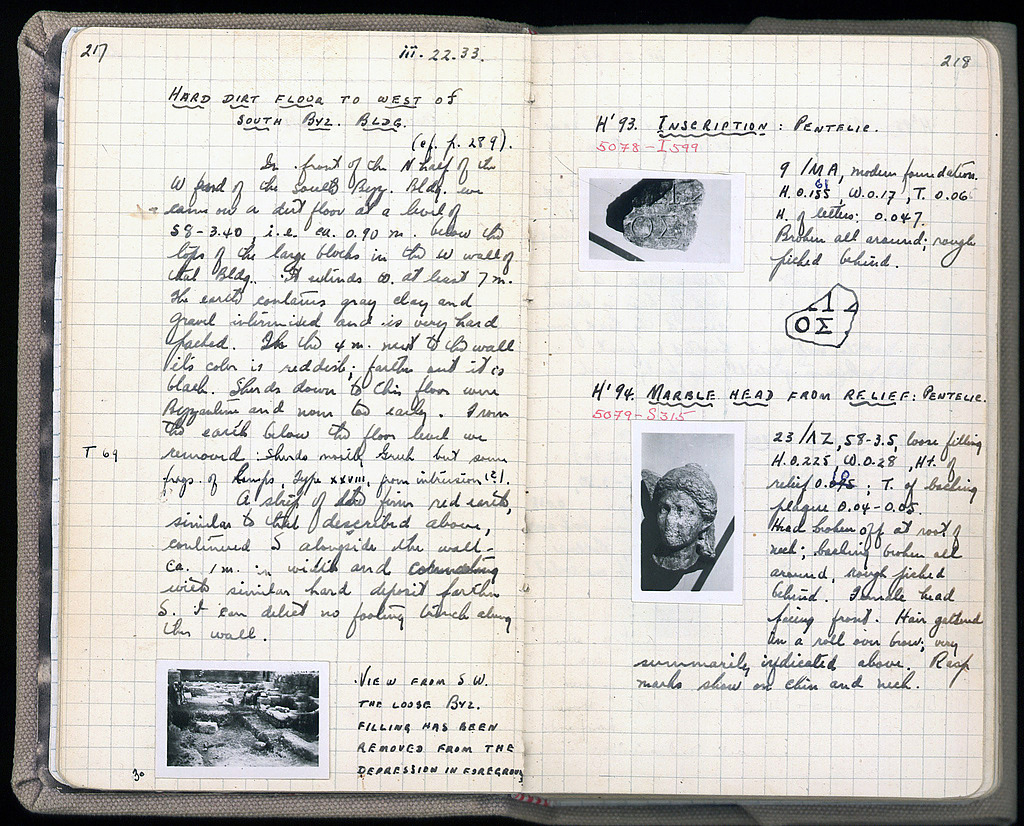 217
iii. 22.33.
HARD DIRT FLOOR TO WEST OF
SOUTH BYZ. BLDG.
(cf. p. 289).
In front of the N half of the
W end of the South Byz. Bldg. we
came on a dirt floor at a level of
58-3.40, i.e. ca. 0.90 m. below the
tops of the large blocks in the W wall of
that Bldg. It extends W. at least 7 m.
The earth contains gray clay and
gravel intermixed and is very hard
packed. In the 4 m. next to the wall
its color is reddish; farther out it is
black. Sherds down to this floor were
Byzantine and none too early. From
the earth below the floor level we
T 69
removed: sherds mostly Greek but some
frags. of lamps, Type XXVIII, from intrusion (?).
A strip of firm red earth,
similar to that described above,
continued S alongside the wall -
ca. 1 m. in width and connecting
with similar hard deposit farther
S. I can detect no footing trench along
this wall.
VIEW FROM S.W.
THE LOOSE BYZ.
FILLING HAS BEEN
REMOVED FROM THE
DEPRESSION IN FOREGROUND
30
218
H'93. INSCRIPTION: PENTELIC.
5078-I599
9/MA, modern foundation.
H. 0.185, W. 0.17, T. 0.06
H. of letters: 0.047
Broken all around; rough
picked behind.
ΟΣ
H'94. MARBLE HEAD FROM RELIEF: PENTELIC.
5079-S315
23/ΛΖ, 58-3.5, loose filling
H. 0.225, W. 0.28, Ht. of
relief; T. of backing
plaque 0.04-0.05.
Head broken off at root of
neck; backing broken all
around, rough picked
behind. Female head
facing front. Hair gathered
in a roll over brow, very
summarily indicated above. Rasp
marks show on chin and neck.